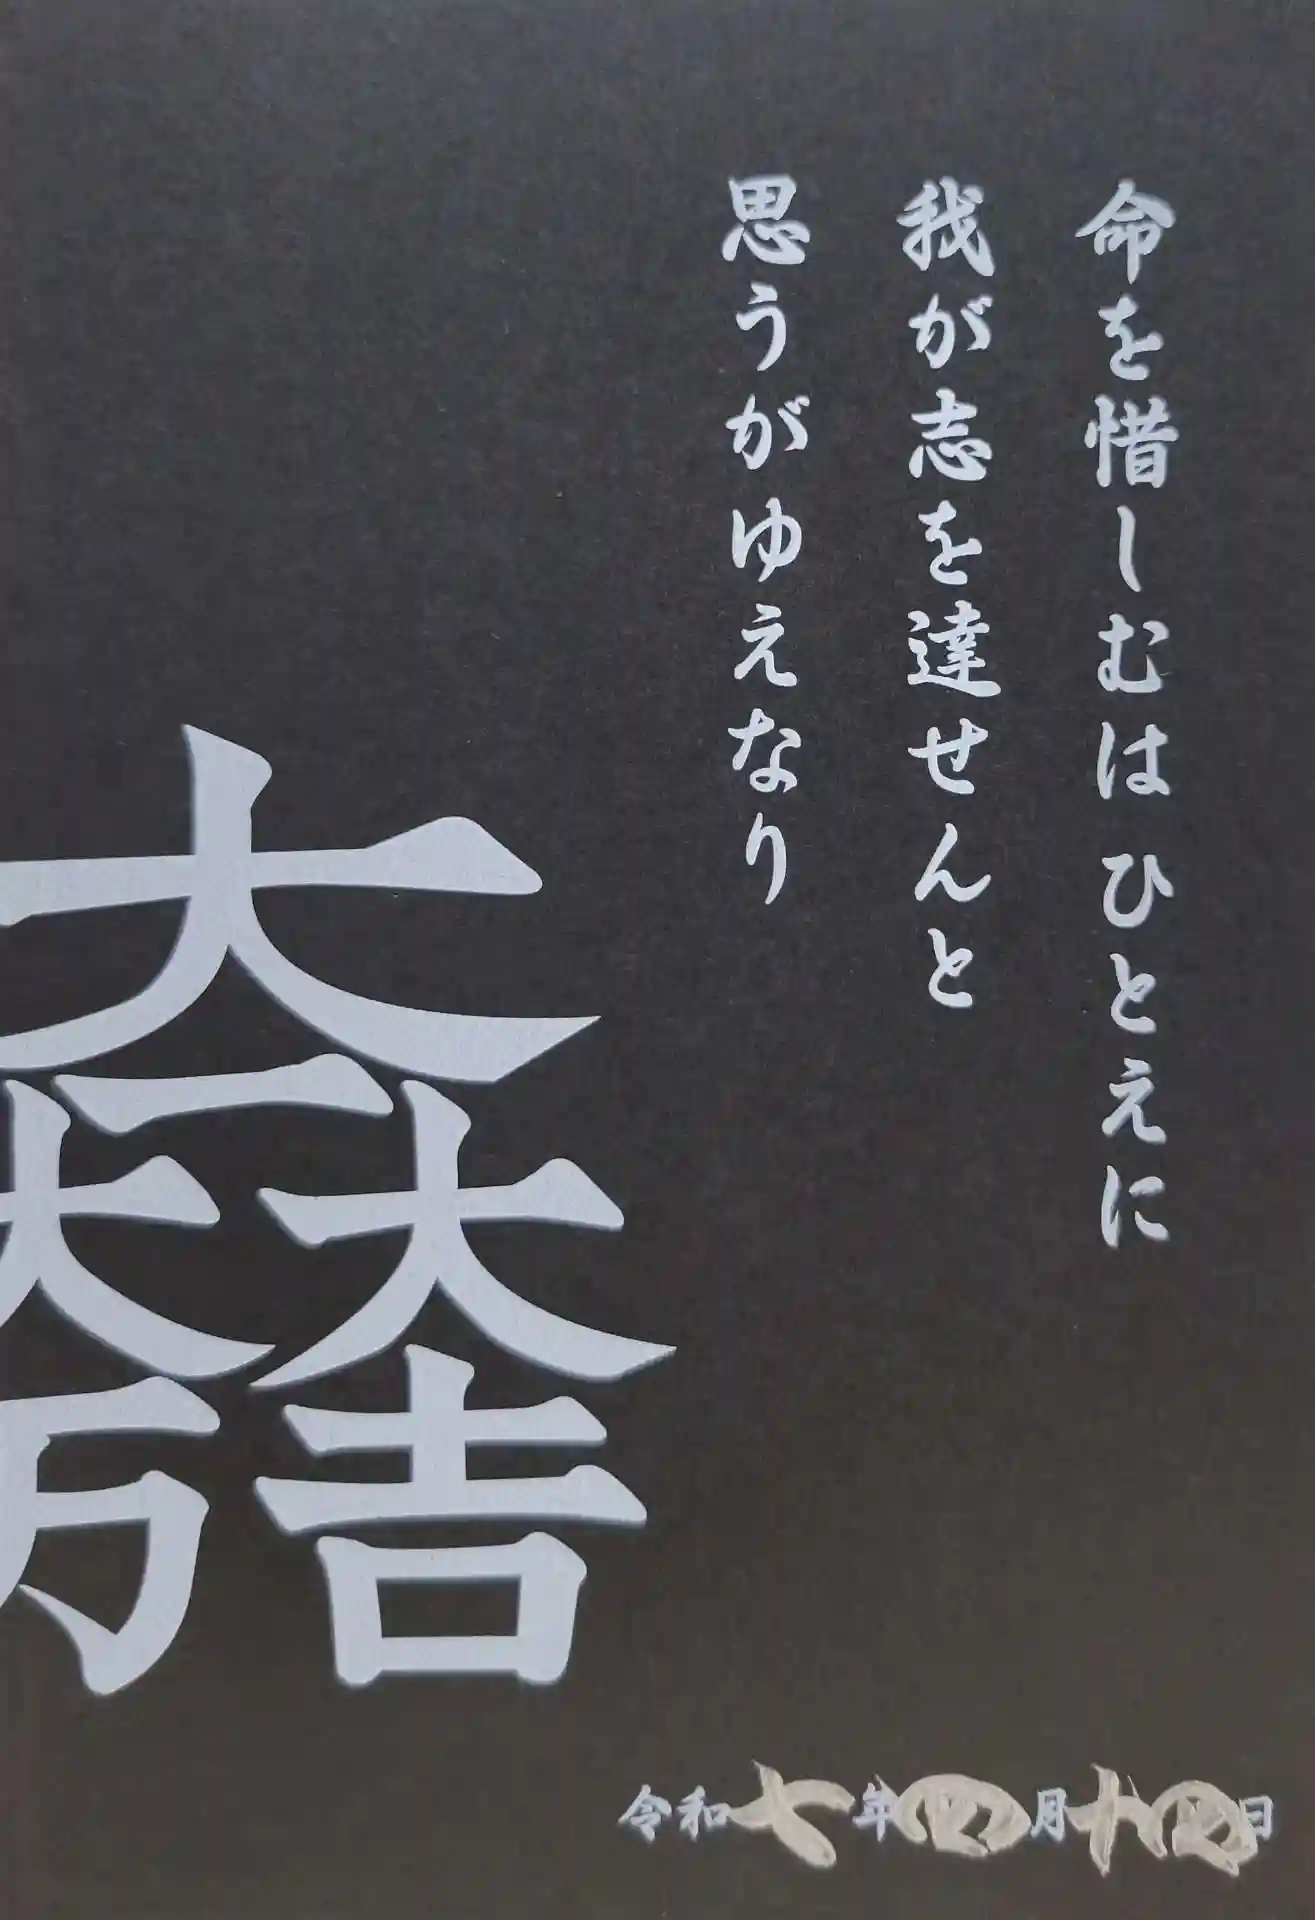 命を惜しむは ひとえに
我が志を達せんと
思うがゆえなり
大一大万大吉
令和七年四月十四日